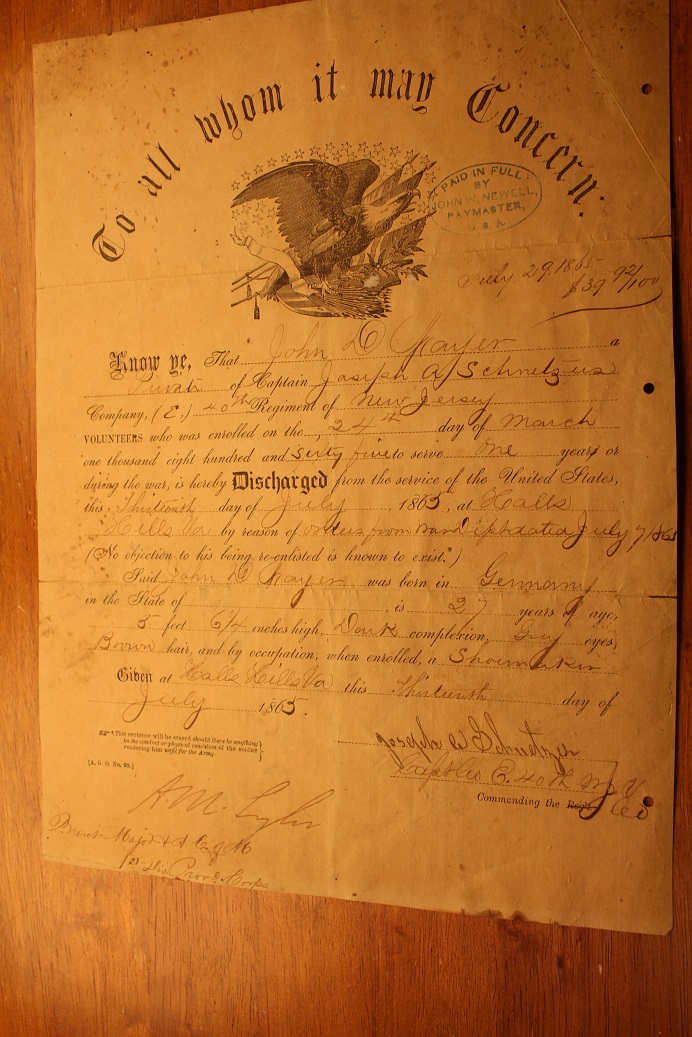 To all whom it may Concern:
PAID IN FULL
BY
JOHN W. NEWELL,
PAYMASTER,
U.S.A.
July 29, 1865
$39 92/100
Know ye, That John D Mayer a
Private of Captain Joseph A Schnetzus
Company, (E.) 40th Regiment of New Jersey
VOLUNTEERS who was enrolled on the 24th day of March
one thousand eight hundred and Sixty five to serve one years or
during the war, is hereby Discharged from the service of the United States,
this Thirteenth day of July, 1865, at Halls
Hills Va by reason of orders from War July 7/1865
(No objection to his being re-enlisted is known to exist.*)
Said John D Mayer was born in Germany
in the State of , is 27 years of age,
5 feet 6 1/4 inches high, Dark complexion, Grey eyes,
Brown hair, and by occupation, when enrolled, a Shoemaker
Given at Halls Hills Va this Thirteenth day of
July 1865.
*This sentence will be erased should there be anything
in the conduct or physical condition of the soldier
rendering him unfit for the Army.
[A. G. O. No. 99.]
Joseph
Capt Co E. 40th N J V
Commanding the Reg't. Co
A M
Brevet Major & A
1st Div Prov'l Corps